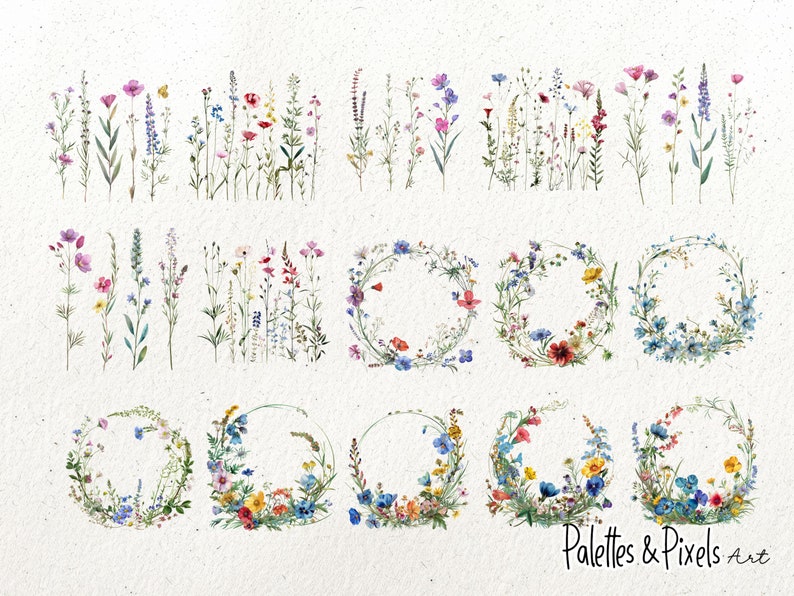 Palettes & Pixels Art